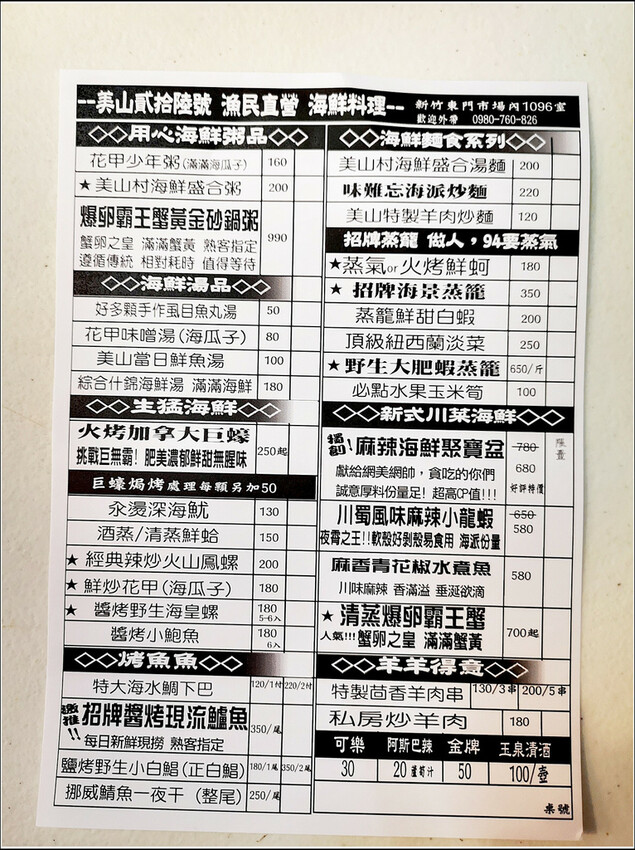 --美山貳拾陸號 漁民直營 海鮮料理-- 新竹東門市場內1096室
歡迎外帶 0980-760-826
◇◇用心海鮮粥品◇◇
花甲少年粥(滿滿海瓜子) 160
★美山村海鮮盛合粥 200
爆卵霸王蟹黃金砂鍋粥 990
蟹卵之皇 滿滿蟹黃 熟客指定
遵循傳統 相對耗時 值得等待
◇◇海鮮湯品◇◇
好多顆手作虱目魚丸湯 50
花甲味噌湯(海瓜子) 80
美山當日鮮魚湯 100
綜合什錦海鮮湯 滿滿海鮮 180
◇◇生猛海鮮◇◇
火烤加拿大巨蠔 250起
挑戰巨無霸! 肥美濃郁鮮甜無腥味
巨蠔焗烤處理每顆另加50
汆燙深海魷 130
酒蒸/清蒸鮮蛤 150
★經典辣炒火山鳳螺 200
★鮮炒花甲(海瓜子) 180
★醬烤野生海皇螺 180
5-6入
醬烤小鮑魚 180
6入
◇◇烤魚魚◇◇
特大海水鯛下巴 120/1付 220/2付
激推!! 招牌醬烤現流鱸魚 350/尾
每日新鮮現撈 熟客指定
鹽烤野生小白鯧(正白鯧) 180/1尾 350/2尾
挪威鯖魚一夜干(整尾) 250/尾
◇◇海鮮麵食系列◇◇
美山村海鮮盛合湯麵 200
味難忘海派炒麵 220
美山特製羊肉炒麵 120
招牌蒸籠 做人，94要蒸氣
★蒸氣or火烤鮮蚵 180
★招牌海景蒸籠 350
蒸籠鮮甜白蝦 200
頂級紐西蘭淡菜 250
★野生大肥蝦蒸籠 650/斤
必點水果玉米筍 100
◇◇新式川菜海鮮◇◇
獨創!麻辣海鮮聚寶盆 780 限量
獻給網美網帥，貪吃的你們 680
誠意厚料份量足! 超高CP值!!! 好評特價
川蜀風味麻辣小龍蝦 650
夜宵之王!!軟殼好剝殼易食用 海派份量 580
麻香青花椒水煮魚 580
川味麻辣 香滿溢 垂涎欲滴
★清蒸爆卵霸王蟹 700起
人氣!!! 蟹卵之皇 滿滿蟹黃
◇◇羊羊得意◇◇
特製茴香羊肉串 130/3串 200/5串
私房炒羊肉 180
可樂 阿斯巴辣 金牌 玉泉清酒
30 20蘆筍汁 50 100/壺
桌號